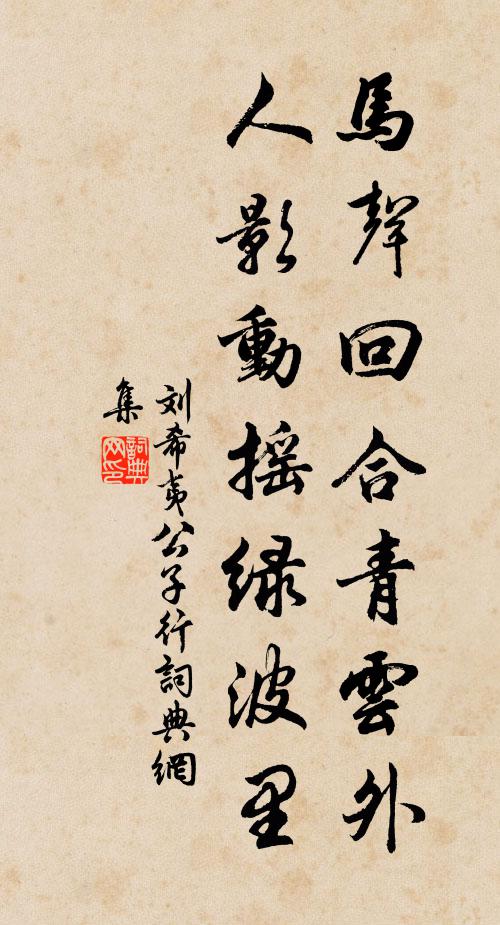 馬聲回合青雲外
人影動摇緑波里
刘希夷公子行詞典網
集
詞典
网印